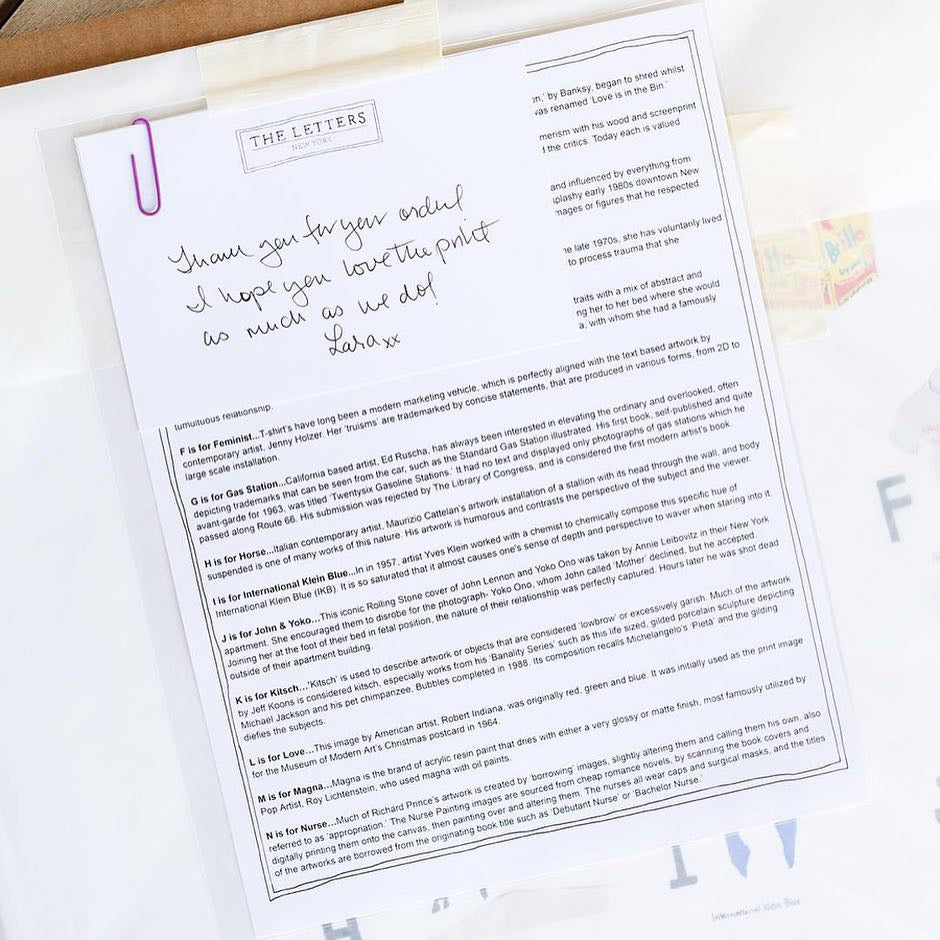 THE LETTERS
NEW YORK
Thank you for your order!
I hope you love the print
as much as we do!
Lara xx
by Banksy, began to shred whilst
was renamed 'Love is in the Bin.'
with his wood and screenprint
the critics. Today each is valued
and influenced by everything from
splashy early 1980s downtown New
images or figures that he respected
late 1970s, she has voluntarily lived
to process trauma that she
with a mix of abstract and
her to her bed where she would
with whom she had a famously
tumultuous relationship.
F is for Feminist...T-shirt's have long been a modern marketing vehicle, which is perfectly aligned with the text based artwork by
contemporary artist, Jenny Holzer. Her 'truisms' are trademarked by concise statements, that are produced in various forms, from 2D to
large scale installation.
G is for Gas Station...California based artist, Ed Ruscha, has always been interested in elevating the ordinary and overlooked, often
depicting trademarks that can be seen from the car, such as the Standard Gas Station illustrated. His first book, self-published and quite
avant-garde for 1963, was titled 'Twentysix Gasoline Stations.' It had no text and displayed only photographs of gas stations which he
passed along Route 66. His submission was rejected by The Library of Congress, and is considered the first modern artist's book.
H is for Horse...Italian contemporary artist, Maurizio Cattelan's artwork installation of a stallion with its head through the wall, and body
suspended is one of many works of this nature. His artwork is humorous and contrasts the perspective of the subject and the viewer.
I is for International Klein Blue...In in 1957, artist Yves Klein worked with a chemist to chemically compose this specific hue of
International Klein Blue (IKB). It is so saturated that it almost causes one's sense of depth and perspective to waver when staring into it.
J is for John & Yoko...This iconic Rolling Stone cover of John Lennon and Yoko Ono was taken by Annie Leibovitz in their New York
apartment. She encouraged them to disrobe for the photograph- Yoko Ono, whom John called 'Mother' declined, but he accepted.
Joining her at the foot of their bed in fetal position, the nature of their relationship was perfectly captured. Hours later he was shot dead
outside of their apartment building.
K is for Kitsch...'Kitsch' is used to describe artwork or objects that are considered 'lowbrow' or excessively garish. Much of the artwork
by Jeff Koons is considered kitsch, especially works from his 'Banality Series' such as this life sized, gilded porcelain sculpture depicting
Michael Jackson and his pet chimpanzee, Bubbles completed in 1988. Its composition recalls Michelangelo's 'Pieta' and the gilding
defies the subjects.
L is for Love...This image by American artist, Robert Indiana, was originally red, green and blue. It was initially used as the print image
for the Museum of Modern Art's Christmas postcard in 1964.
M is for Magna...Magna is the brand of acrylic resin paint that dries with either a very glossy or matte finish, most famously utilized by
Pop Artist, Roy Lichtenstein, who used magna with oil paints.
N is for Nurse...Much of Richard Prince's artwork is created by 'borrowing' images, slightly altering them and calling them his own, also
referred to as 'appropriation.' The Nurse Painting images are sourced from cheap romance novels, by scanning the book covers and
digitally printing them onto the canvas, then painting over and altering them. The nurses all wear caps and surgical masks, and the titles
of the artworks are borrowed from the originating book title such as 'Debutant Nurse' or 'Bachelor Nurse.'
Brillo
F
H
I
International Klein Blue